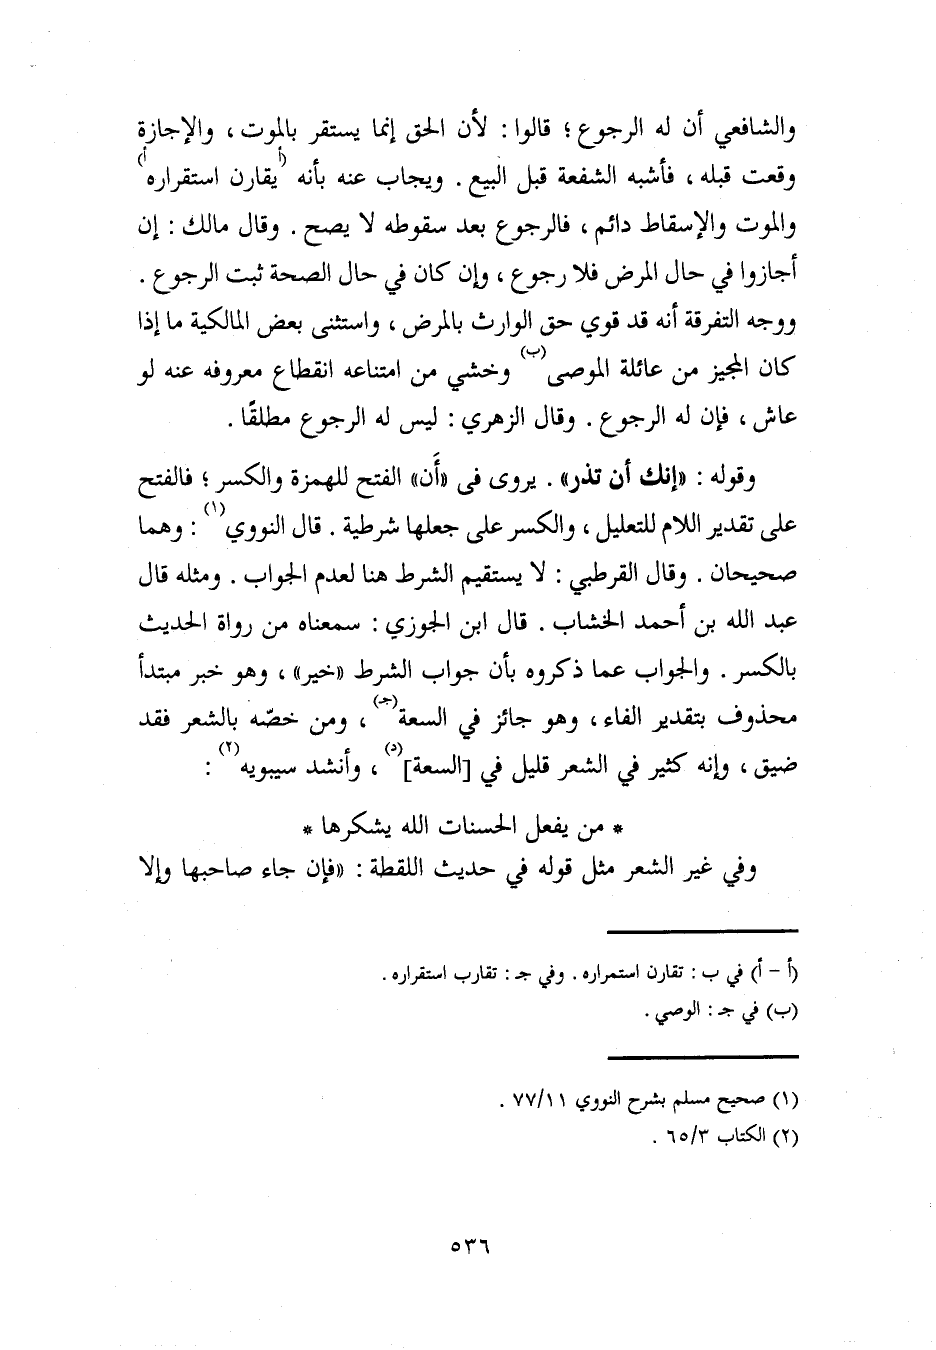 والشافعي أن له الرجوع ؛ قالوا : لأن الحق إنما يستقر بالموت ، والإجازة
وقعت قبله ، فأشبه الشفعة قبل البيع . ويجاب عنه بأنه (أ يقارن استقراره أ)
والموت والإسقاط دائم ، فالرجوع بعد سقوطه لا يصح . وقال مالك : إن
أجازوا في حال المرض فلا رجوع ، وإن كان في حال الصحة ثبت الرجوع .
ووجه التفرقة أنه قد قوي حق الوارث بالمرض ، واستثنى بعض المالكية ما إذا
كان المجيز من عائلة الموصى (ب) وخشي من امتناعه انقطاع معروفه عنه لو
عاش ، فإن له الرجوع . وقال الزهري : ليس له الرجوع مطلقًا .
وقوله : «إنك أن تذر» . يروى فى «أَن» الفتح للهمزة والكسر ؛ فالفتح
على تقدير اللام للتعليل ، والكسر على جعلها شرطية . قال النووي (١) : وهما
صحيحان . وقال القرطبي : لا يستقيم الشرط هنا لعدم الجواب . ومثله قال
عبد الله بن أحمد الخشاب . قال ابن الجوزي : سمعناه من رواة الحديث
بالكسر . والجواب عما ذكروه بأن جواب الشرط «خير» ، وهو خبر مبتدأ
محذوف بتقدير الفاء ، وهو جائز في السعة (جـ) ، ومن خصّه بالشعر فقد
ضيق ، وإنه كثير في الشعر قليل في [السعة] (د) ، وأنشد سيبويه (٢) :
* من يفعل الحسنات الله يشكرها *
وفي غير الشعر مثل قوله في حديث اللقطة : «فإن جاء صاحبها وإلا
(أ - أ) في ب : تقارن استمراره . وفي جـ : تقارب استقراره .
(ب) في جـ : الوصي .
(١) صحيح مسلم بشرح النووي ٧٧/١١ .
(٢) الكتاب ٦٥/٣ .
٥٣٦